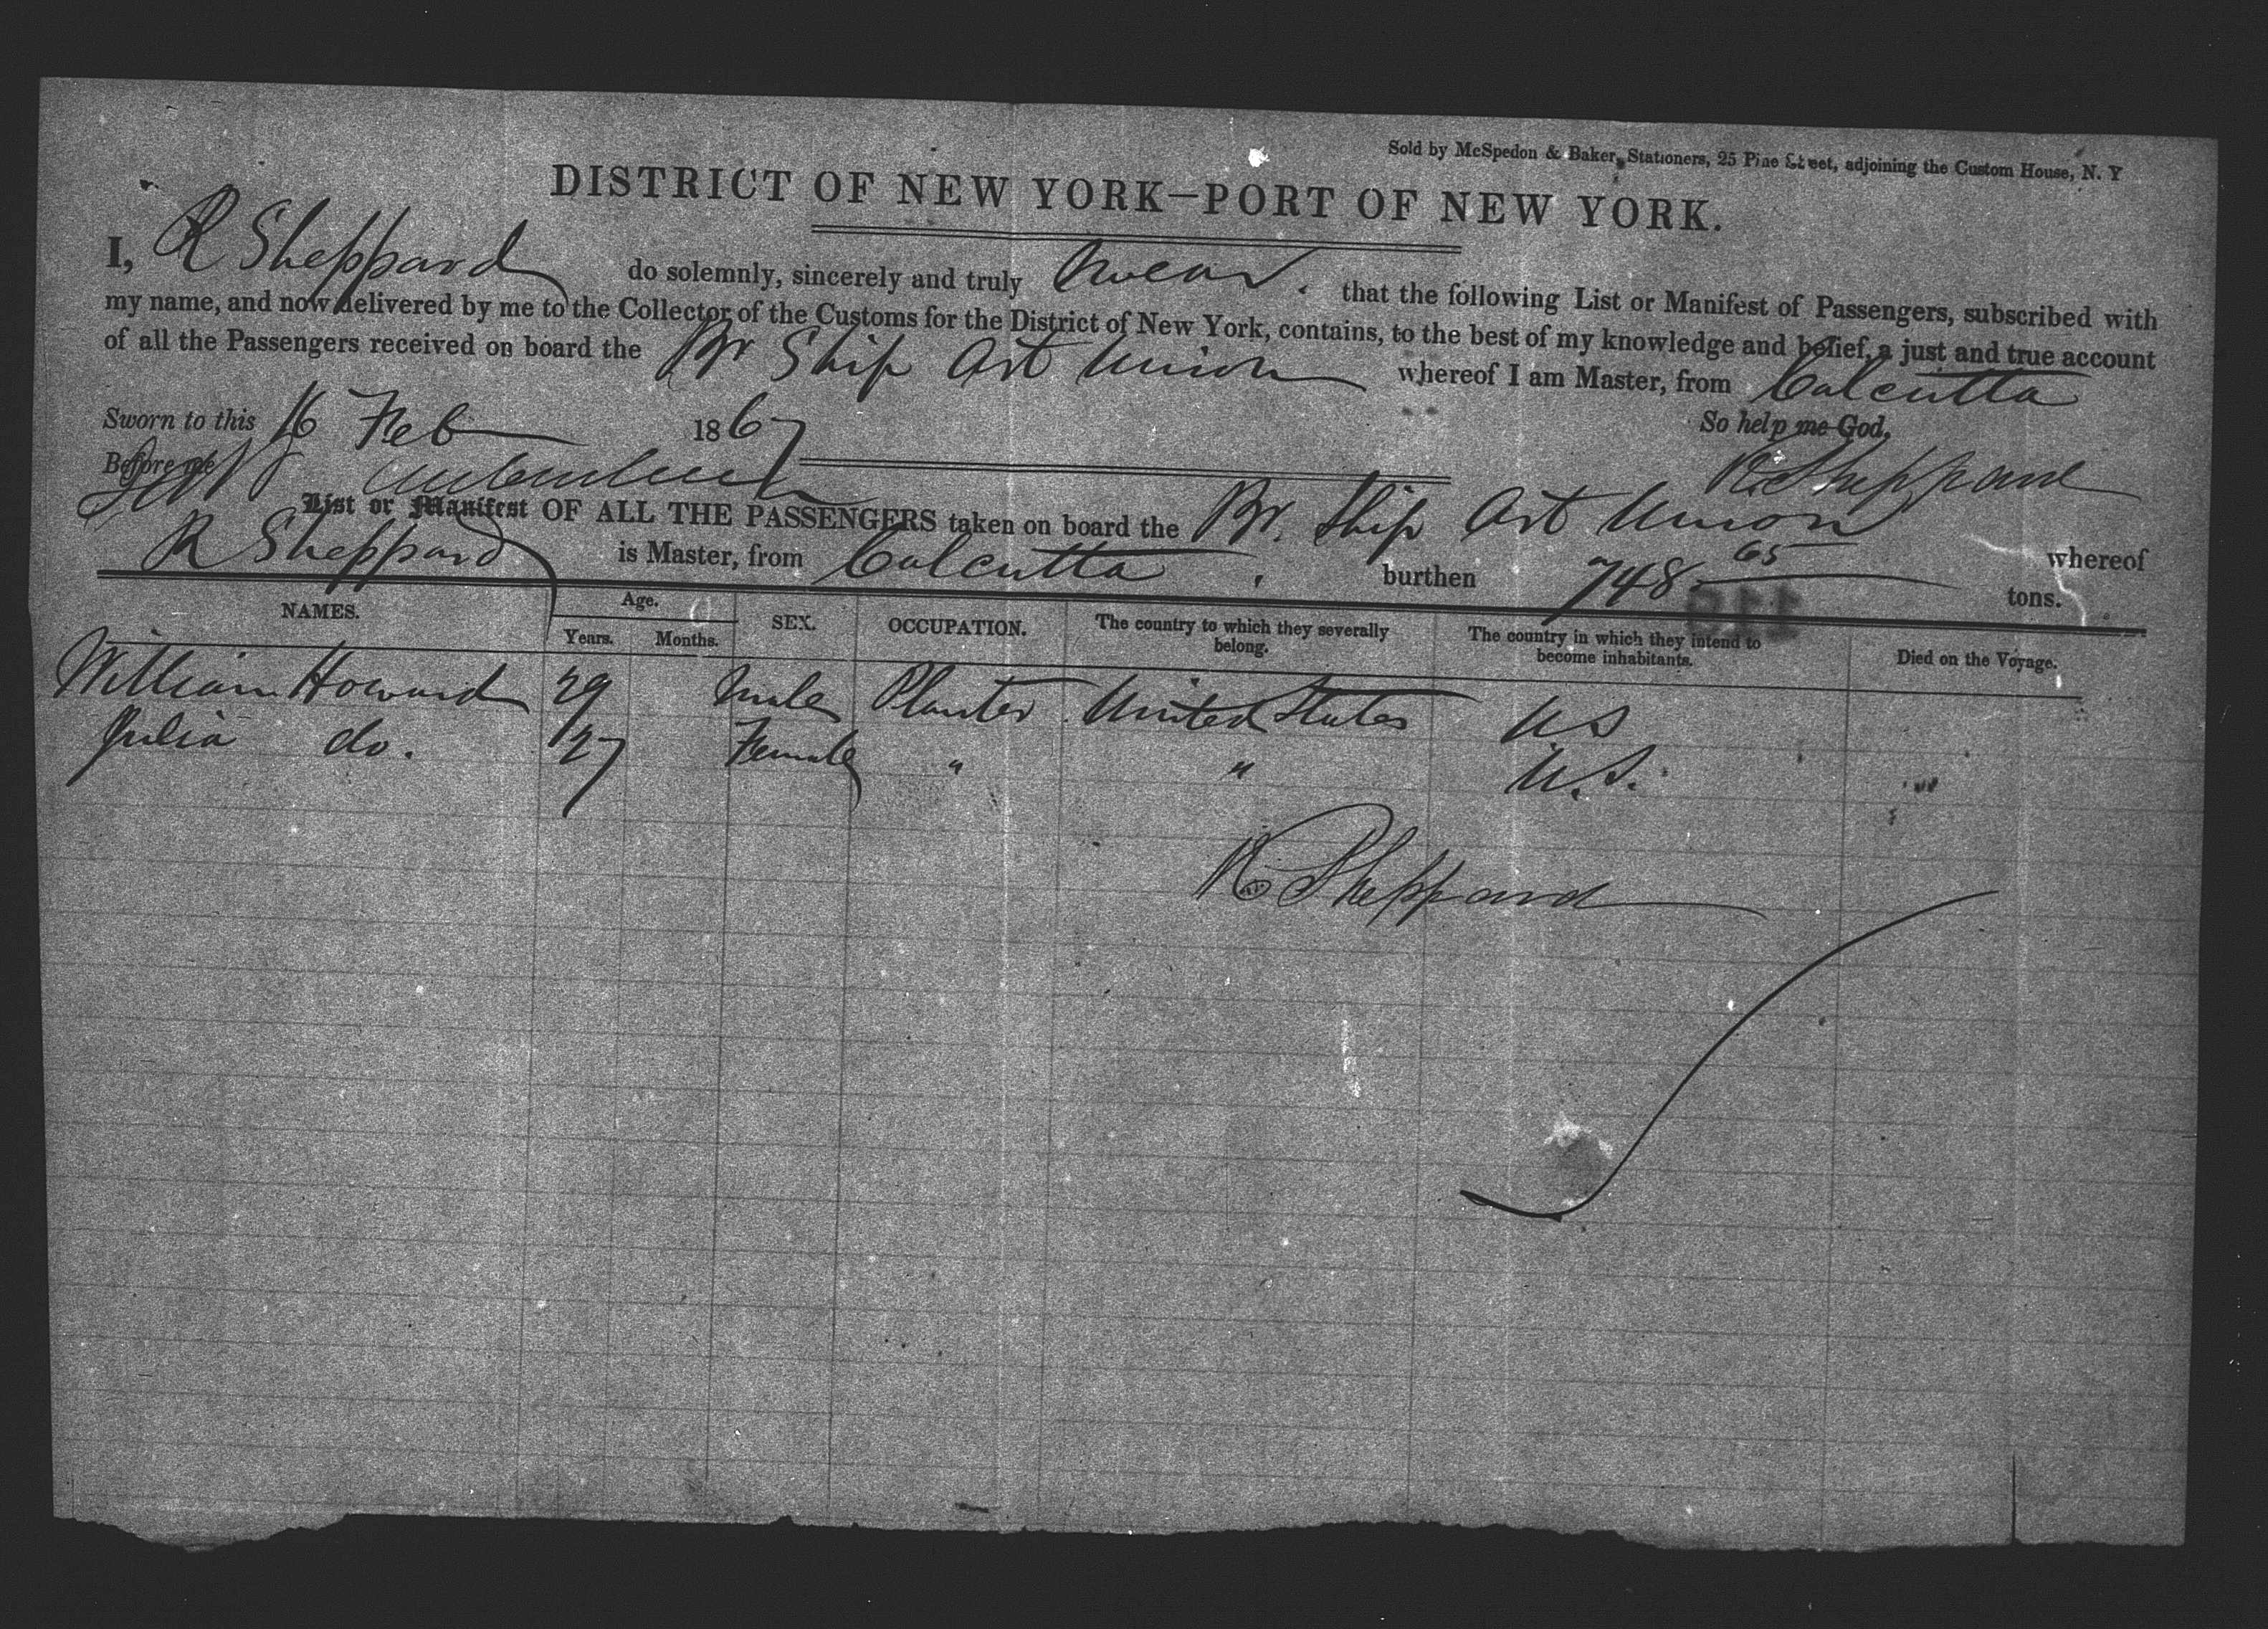 Sold by McSpedon & Baker, Stationers, 25 Pine Street, adjoining the Custom House, N. Y
DISTRICT OF NEW YORK—PORT OF NEW YORK.
I, R Sheppard do solemnly, sincerely and truly swear. that the following List or Manifest of Passengers, subscribed with
my name, and now delivered by me to the Collector of the Customs for the District of New York, contains, to the best of my knowledge and belief, a just and true account
of all the Passengers received on board the Br Ship Art Union whereof I am Master, from Calcutta
Sworn to this 16 Feb 1867 So help me God,
Before me R. Sheppard
List or Manifest OF ALL THE PASSENGERS taken on board the Br. Ship Art Union whereof
R Sheppard is Master, from Calcutta, burthen 748 65 tons.
NAMES. Age. Years. Months. SEX. OCCUPATION. The country to which they severally belong. The country in which they intend to become inhabitants. Died on the Voyage.
William Howard 29 Male Planter United States US
Julia do. 27 Female " " U.S.
R Sheppard